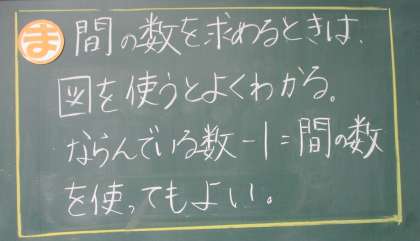 ま 間の数を求めるときは、
図を使うとよくわかる。
ならんでいる数-1=間の数
を使ってもよい。